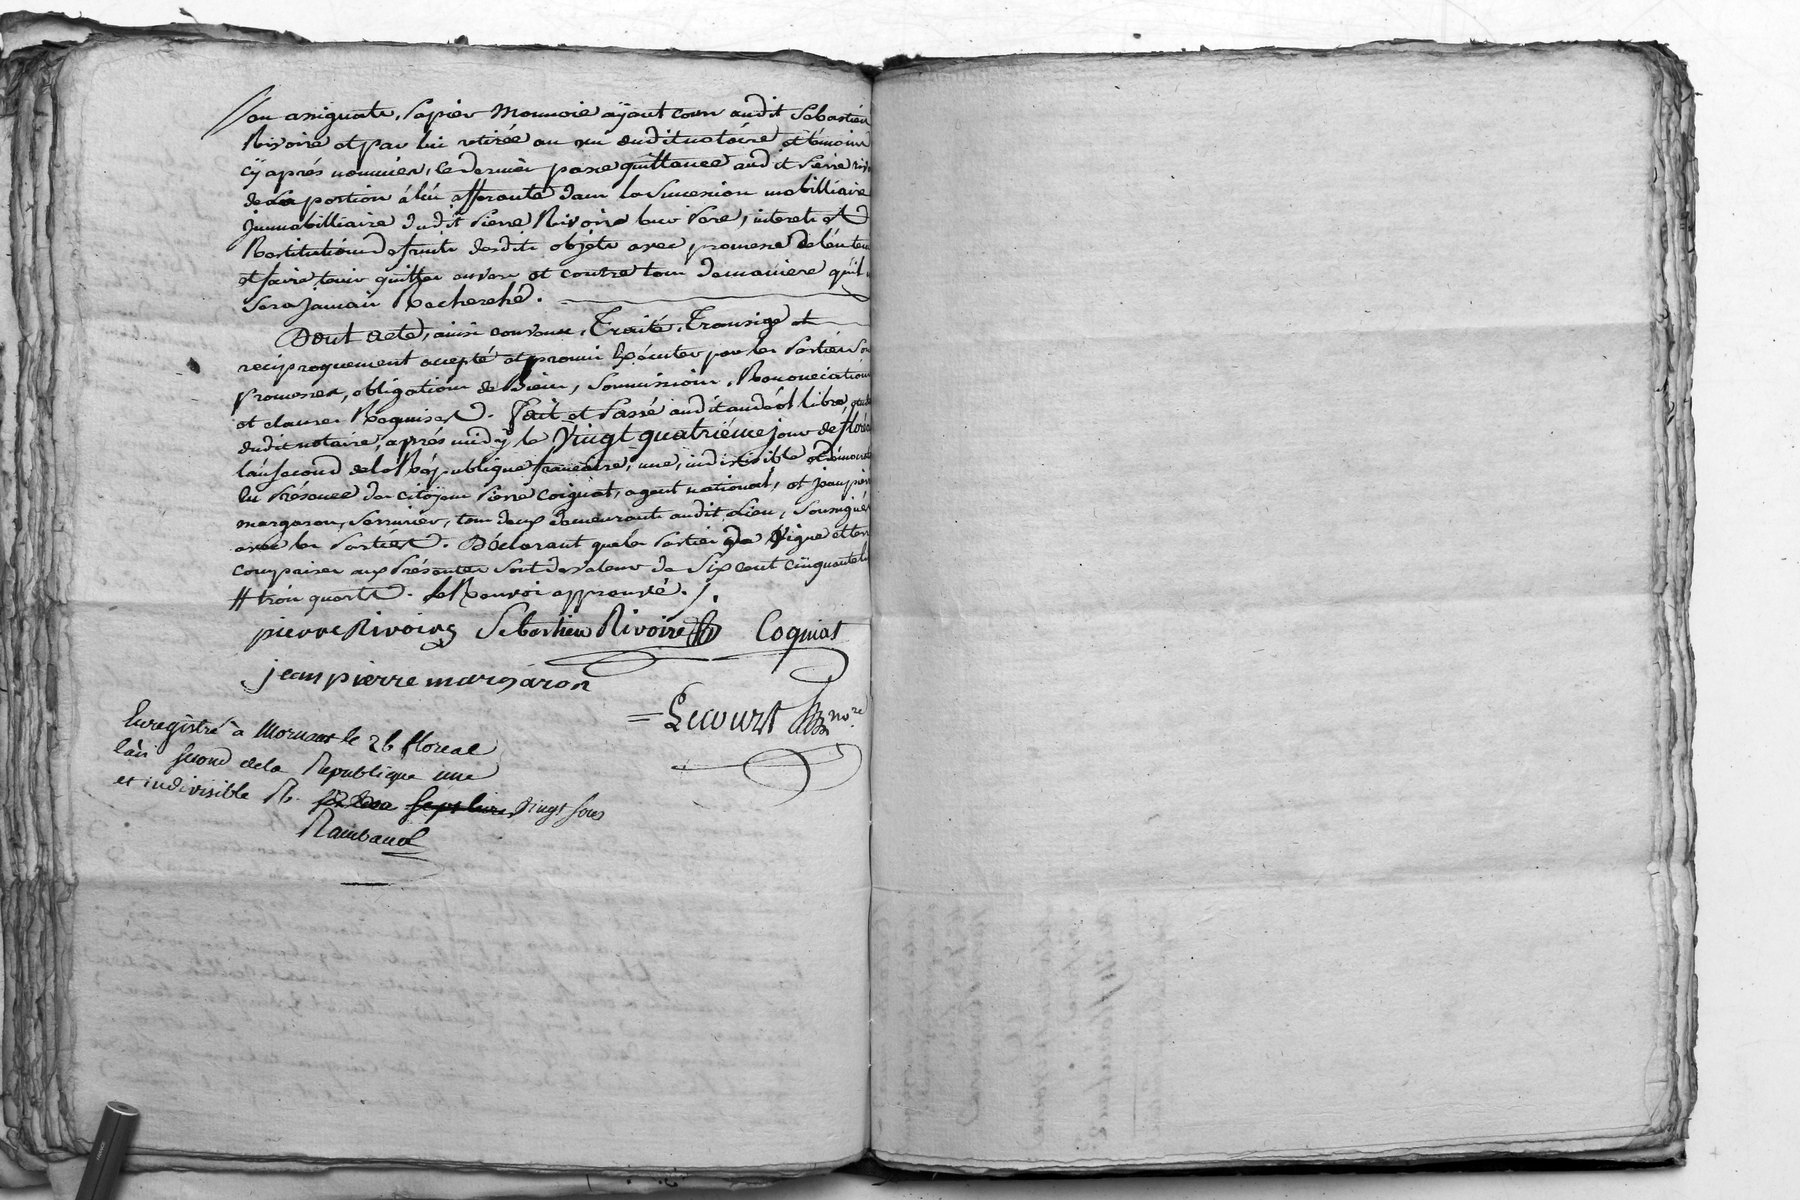 en assignats, papier monnoie ayant cours audit Sebastien
Rivoire et par lui retirée au vu dudit notaire et témoins
cÿ aprés nommés, ce dernier passe quittance audit Pierre
de la portion á lui afferante dans la Succession mobilliaire
immobilliaire dudit Pierre Rivoire leur Pere, interets et
Restitution de fruits desdits objets avec promesse de l'en tenir
et faire tenir quitter envers et contre tous de maniere qu'il n
Sera Jamais Recherché.
Dont acte, ainsi convenu, Traité, Transigé et
reciproquement accepté et promis Exécuter par les Parties Sou
promesses, obligations de Biens, Soumissions, Renonciations
et clauses Requises. Fait et Passé audit
dudit notaire, aprés midÿ le Vingt quatriéme jour de floréal
l'an Second de la République francaise, une, indivisible et démocrati
En Présence des citoÿens Pierre Coignat, agent national, et jean pierre
margaron, Serrurier, tous deux demeurants audit Lieu, Soussignés
avec les Parties. Déclarant que les Parties de Vigne et terre
comprises aux Présentes Sont de Valeur de Six cent cinquante
# trois quarts. Le Renvoi approuvé.
pierre Rivoire Sebastien Rivoire Coquiat
jean pierre margaron
= Lecourt nore
Enregistré à Mornant le 26 floreal
l'an second de la Republique une
et indivisible R. sept livres vingt sous
Rambaud